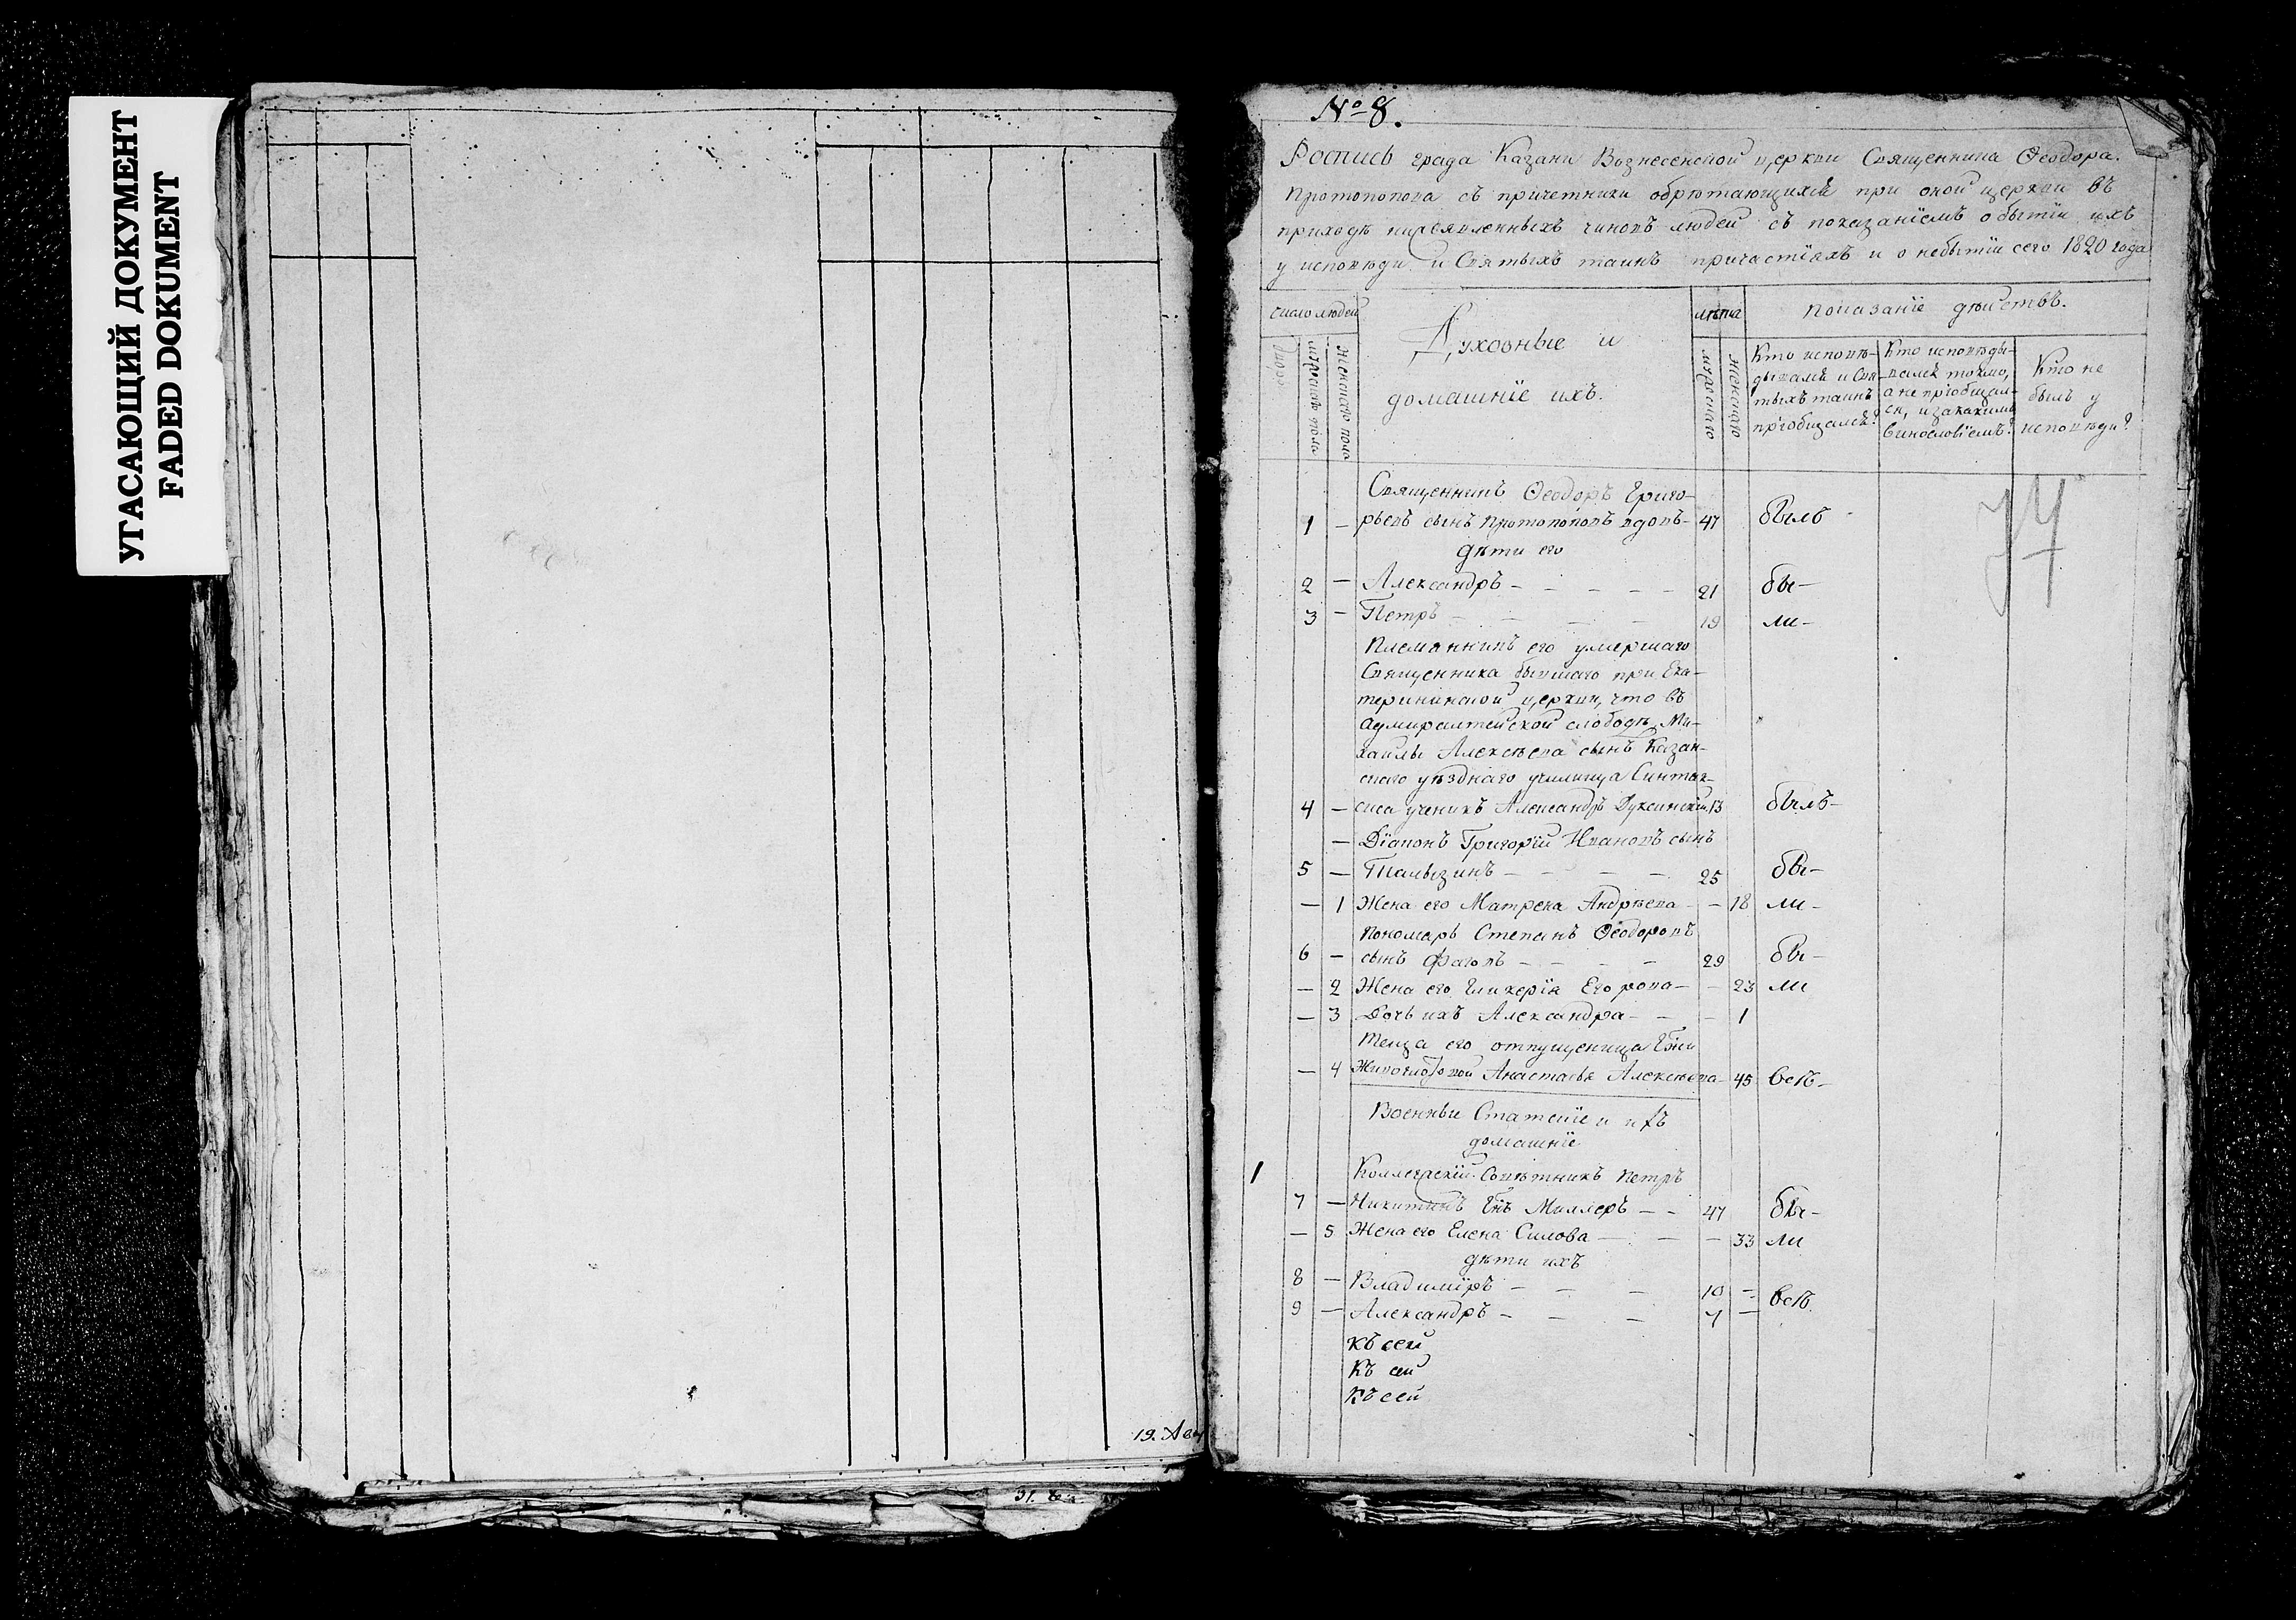 УГАСАЮЩИЙ ДОКУМЕНТ
FADED DOKUMENT
№ 8.
Роспись града Казани Вознесенской церкви Священника Ѳеодора
Протопопова съ причетники обрѣтающихся при оной церкви въ
приходѣ нижеявленныхъ чиновъ людей съ показанїемъ о бытїи ихъ
у исповѣди и Святыхъ таинъ причастїяхъ и о небытїи сего 1820 года
число людей
Духовные и
домашнїе ихъ.
лѣта
показанїе дѣйствъ.
мужеска пола
женскаго пола
мужескаго
женскаго
Кто исповѣ-
дывался и Свя-
тыхъ таинъ
прїобщался?
Кто исповѣды-
вался токмо,
а не прїобщал-
ся, и за какимъ
винословїемъ?
Кто не
былъ у
исповѣди?
Священникъ Ѳеодоръ Григо-
1 — рьевъ сынъ Протопоповъ вдовъ - 47 былъ
дѣти его
2 — Александръ - - - - - 21 бы-
3 — Петръ - - - - 19 ли-
Племянникъ его умершаго
Священника бывшаго при Ека-
терининской церкви, что въ
адмиралтейской слободѣ, Ми-
хаилы Алексѣева сынъ Казан-
скаго уѣзднаго училища Синтак-
4 — сиса ученикъ Александръ 13 былъ-
— Дїаконъ Григорїй Ивановъ сынъ
5 — Талызинъ - - - - 25 бы-
— 1 Жена его Матрена Андрѣева - - 18 ли-
Пономарь Степанъ Ѳеодоровъ
6 — сынъ - - - - 29 бы-
— 2 Жена его Гликерїя Егорова - - 23 ли
— 3 Дочь ихъ Александра - - - 1
Теща его отпущеница Гжи
— 4 Анастасья Алексѣева - 45 всѣ-
Военные Статскїе и ихъ
домашнїе
1 Коллежскїй Совѣтникъ Петръ
7 — Никитинъ Снъ Миллеръ - - 47 бы-
— 5 Жена его Елена Силова - - - 33 ли
дѣти ихъ
8 — Владимїръ - - - 10 - всѣ
9 — Александръ - - - 4 -
Къ сей
Къ сей
Къ сей